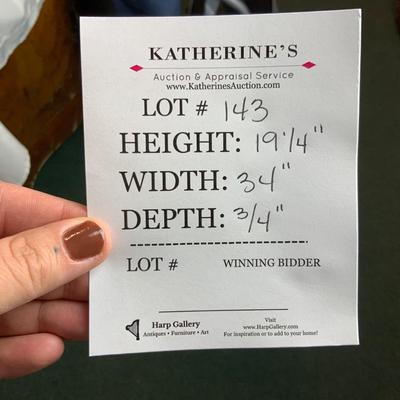 KATHERINE'S
Auction & Appraisal Service
www.KatherinesAuction.com
LOT # 143
HEIGHT: 19 1/4"
WIDTH: 34"
DEPTH: 3/4"
LOT # WINNING BIDDER
Harp Gallery
Antiques • Furniture • Art
Visit
www.HarpGallery.com
For inspiration or to add to your home!